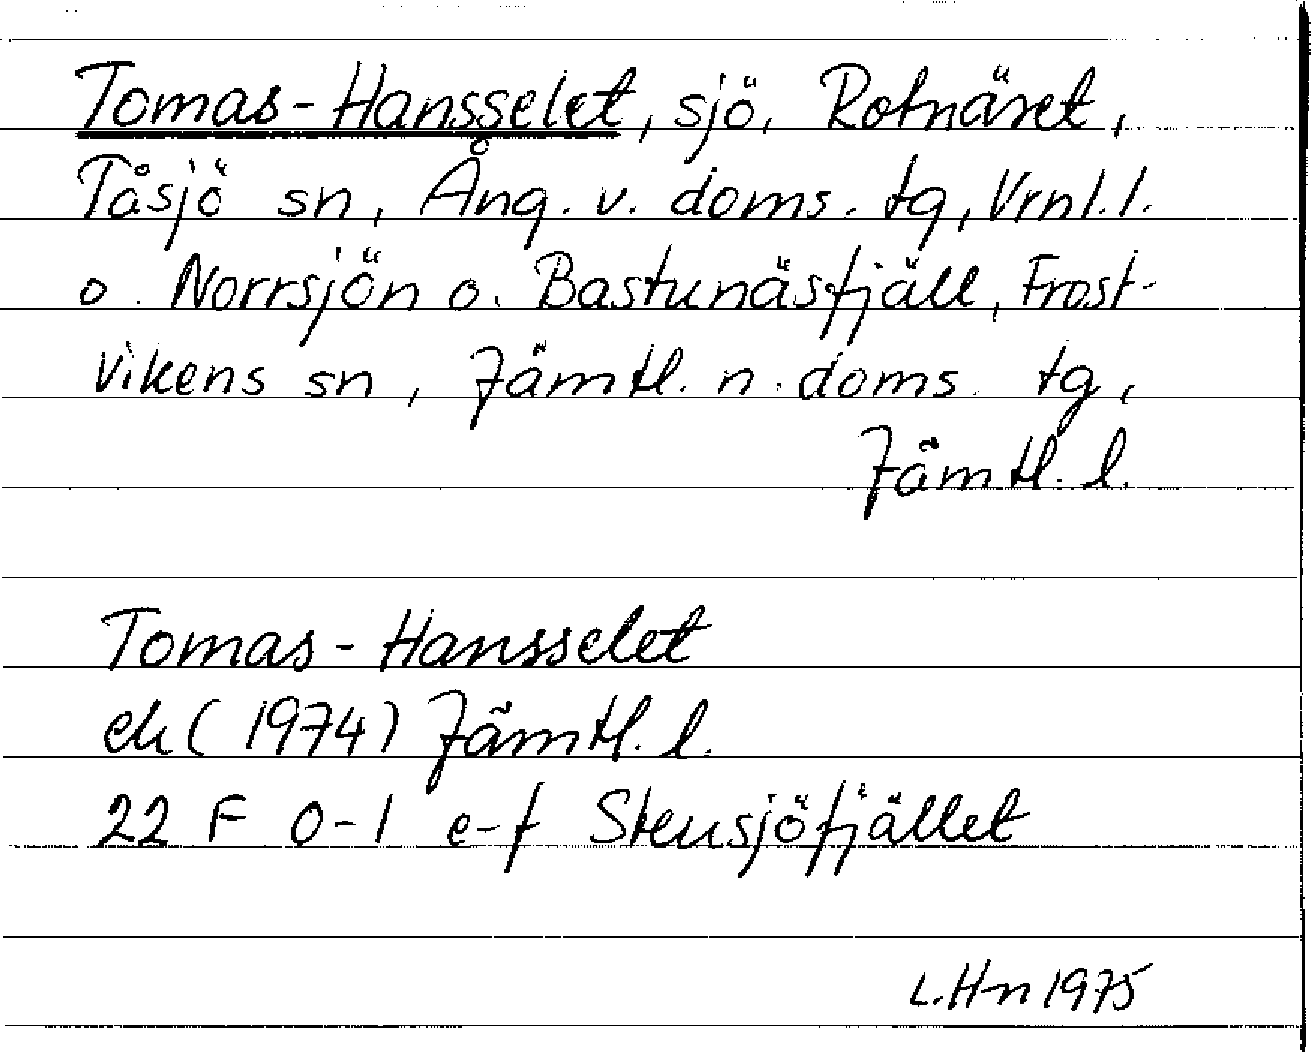 Tomas-Hansselet, sjö, Rotnäset,
Tåsjö sn, Ång. v. doms. tg, Vrnl. l.
o. Norrsjön o. Bastunäsfjäll, Frost-
vikens sn, Jämtl. n. doms. tg,
Jämtl. l.
Tomas-Hansselet
ek (1974) Jämtl. l.
22 F 0-1 e-f Stensjöfjället
L. Hn 1975